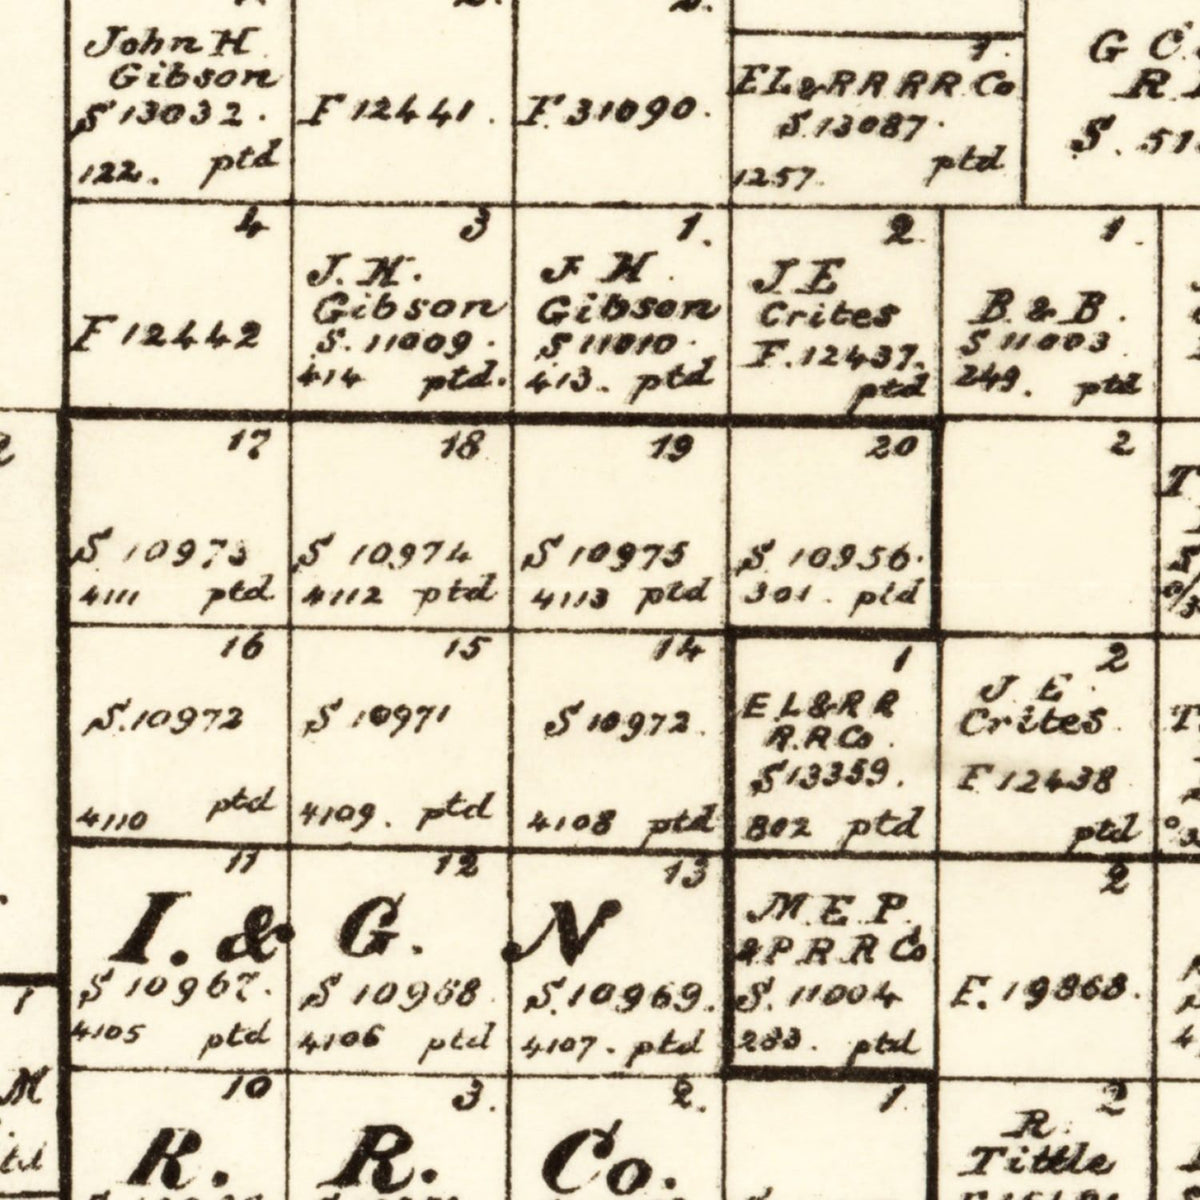 John H
Gibson
S 13032.
122. ptd
F 12441.
F. 31090.
1.
EL&RR RR Co
S. 13087.
1257. ptd
G C
R
S. 51
4
F 12442
3
J. H.
Gibson
S. 11009.
414 ptd.
1.
J H
Gibson
S 11010.
413. ptd
2
J E
Crites
F. 12437.
ptd
1.
B. & B.
S 11003
249. ptd
17
S 10973
4111 ptd
18
S 10974
4112 ptd
19
S 10975
4113 ptd
20
S 10956.
301. ptd
2
16
S. 10972
4110 ptd
15
S 10971
4109. ptd
14
S 10972.
4108 ptd
1
E L&R R
R. R Co.
S 13359.
802 ptd
2
J E
Crites
F 12438
ptd
11
12
13
I. & G. N
S 10967.
4105 ptd
S 10968
4106 ptd
S. 10969.
4107. ptd
M. E. P.
&P. R. R Co
S. 11004
233. ptd
2
F. 19868.
1
M
10
3.
2.
R. R. Co.
1.
2
R.
Tittle